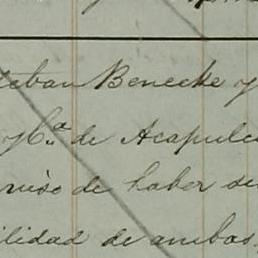 teban Benecke y
y Cª de Acapulco
de haber
ilidad de ambas